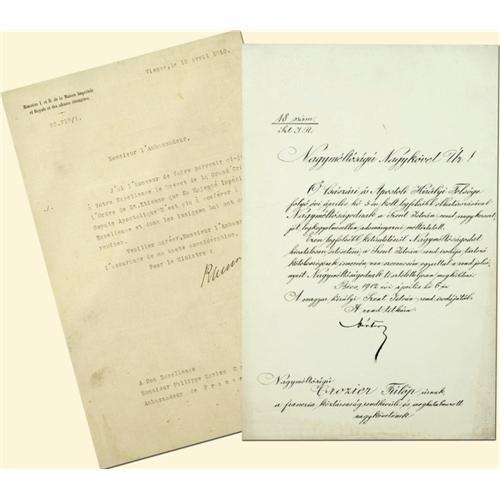 Vienne, le 12 avril 1912.
Ministère I. et R. de la Maison Impériale
et Royale et des affaires étrangères.
Monsieur l'Ambassadeur,
J'ai l'honneur de faire parvenir ci-jo
à Votre Excellence le brevet de la Grand'Croi
l'Ordre de St. Etienne que Sa Majesté Impéri
Royale Apostolique
Excellence et dont les insignes lui ont
Veuillez agréer, Monsieur l'Ambass
l'assurance de ma haute considération.
Pour le Ministre:
A Son Excellence
Monsieur Philippe Marius C
Ambassadeur de France
18. szám.
Szt. I. R.
Nagyméltóságú Nagykövet Úr!
Ő császári és Apostoli Királyi Felsége
folyó évi április hó 3-án kelt legfelsőbb elhatározásával
Nagyméltóságodnak a Szent István rend nagykeresztjét
legkegyelmesebben adományozni méltóztatott.
Ezen legfelsőbb kitüntetésről Nagyméltóságodat
van szerencsém egyuttal a rend
Nagyméltóságodnak megküldeni.
Bécs, 1912 évi április hó 6-án.
A magyar királyi Szent István rend
A rend titkára
Nagyméltóságú
Crozier Fülöp úrnak
a franczia köztársaság rendkívüli és meghatalmazott
nagykövetének